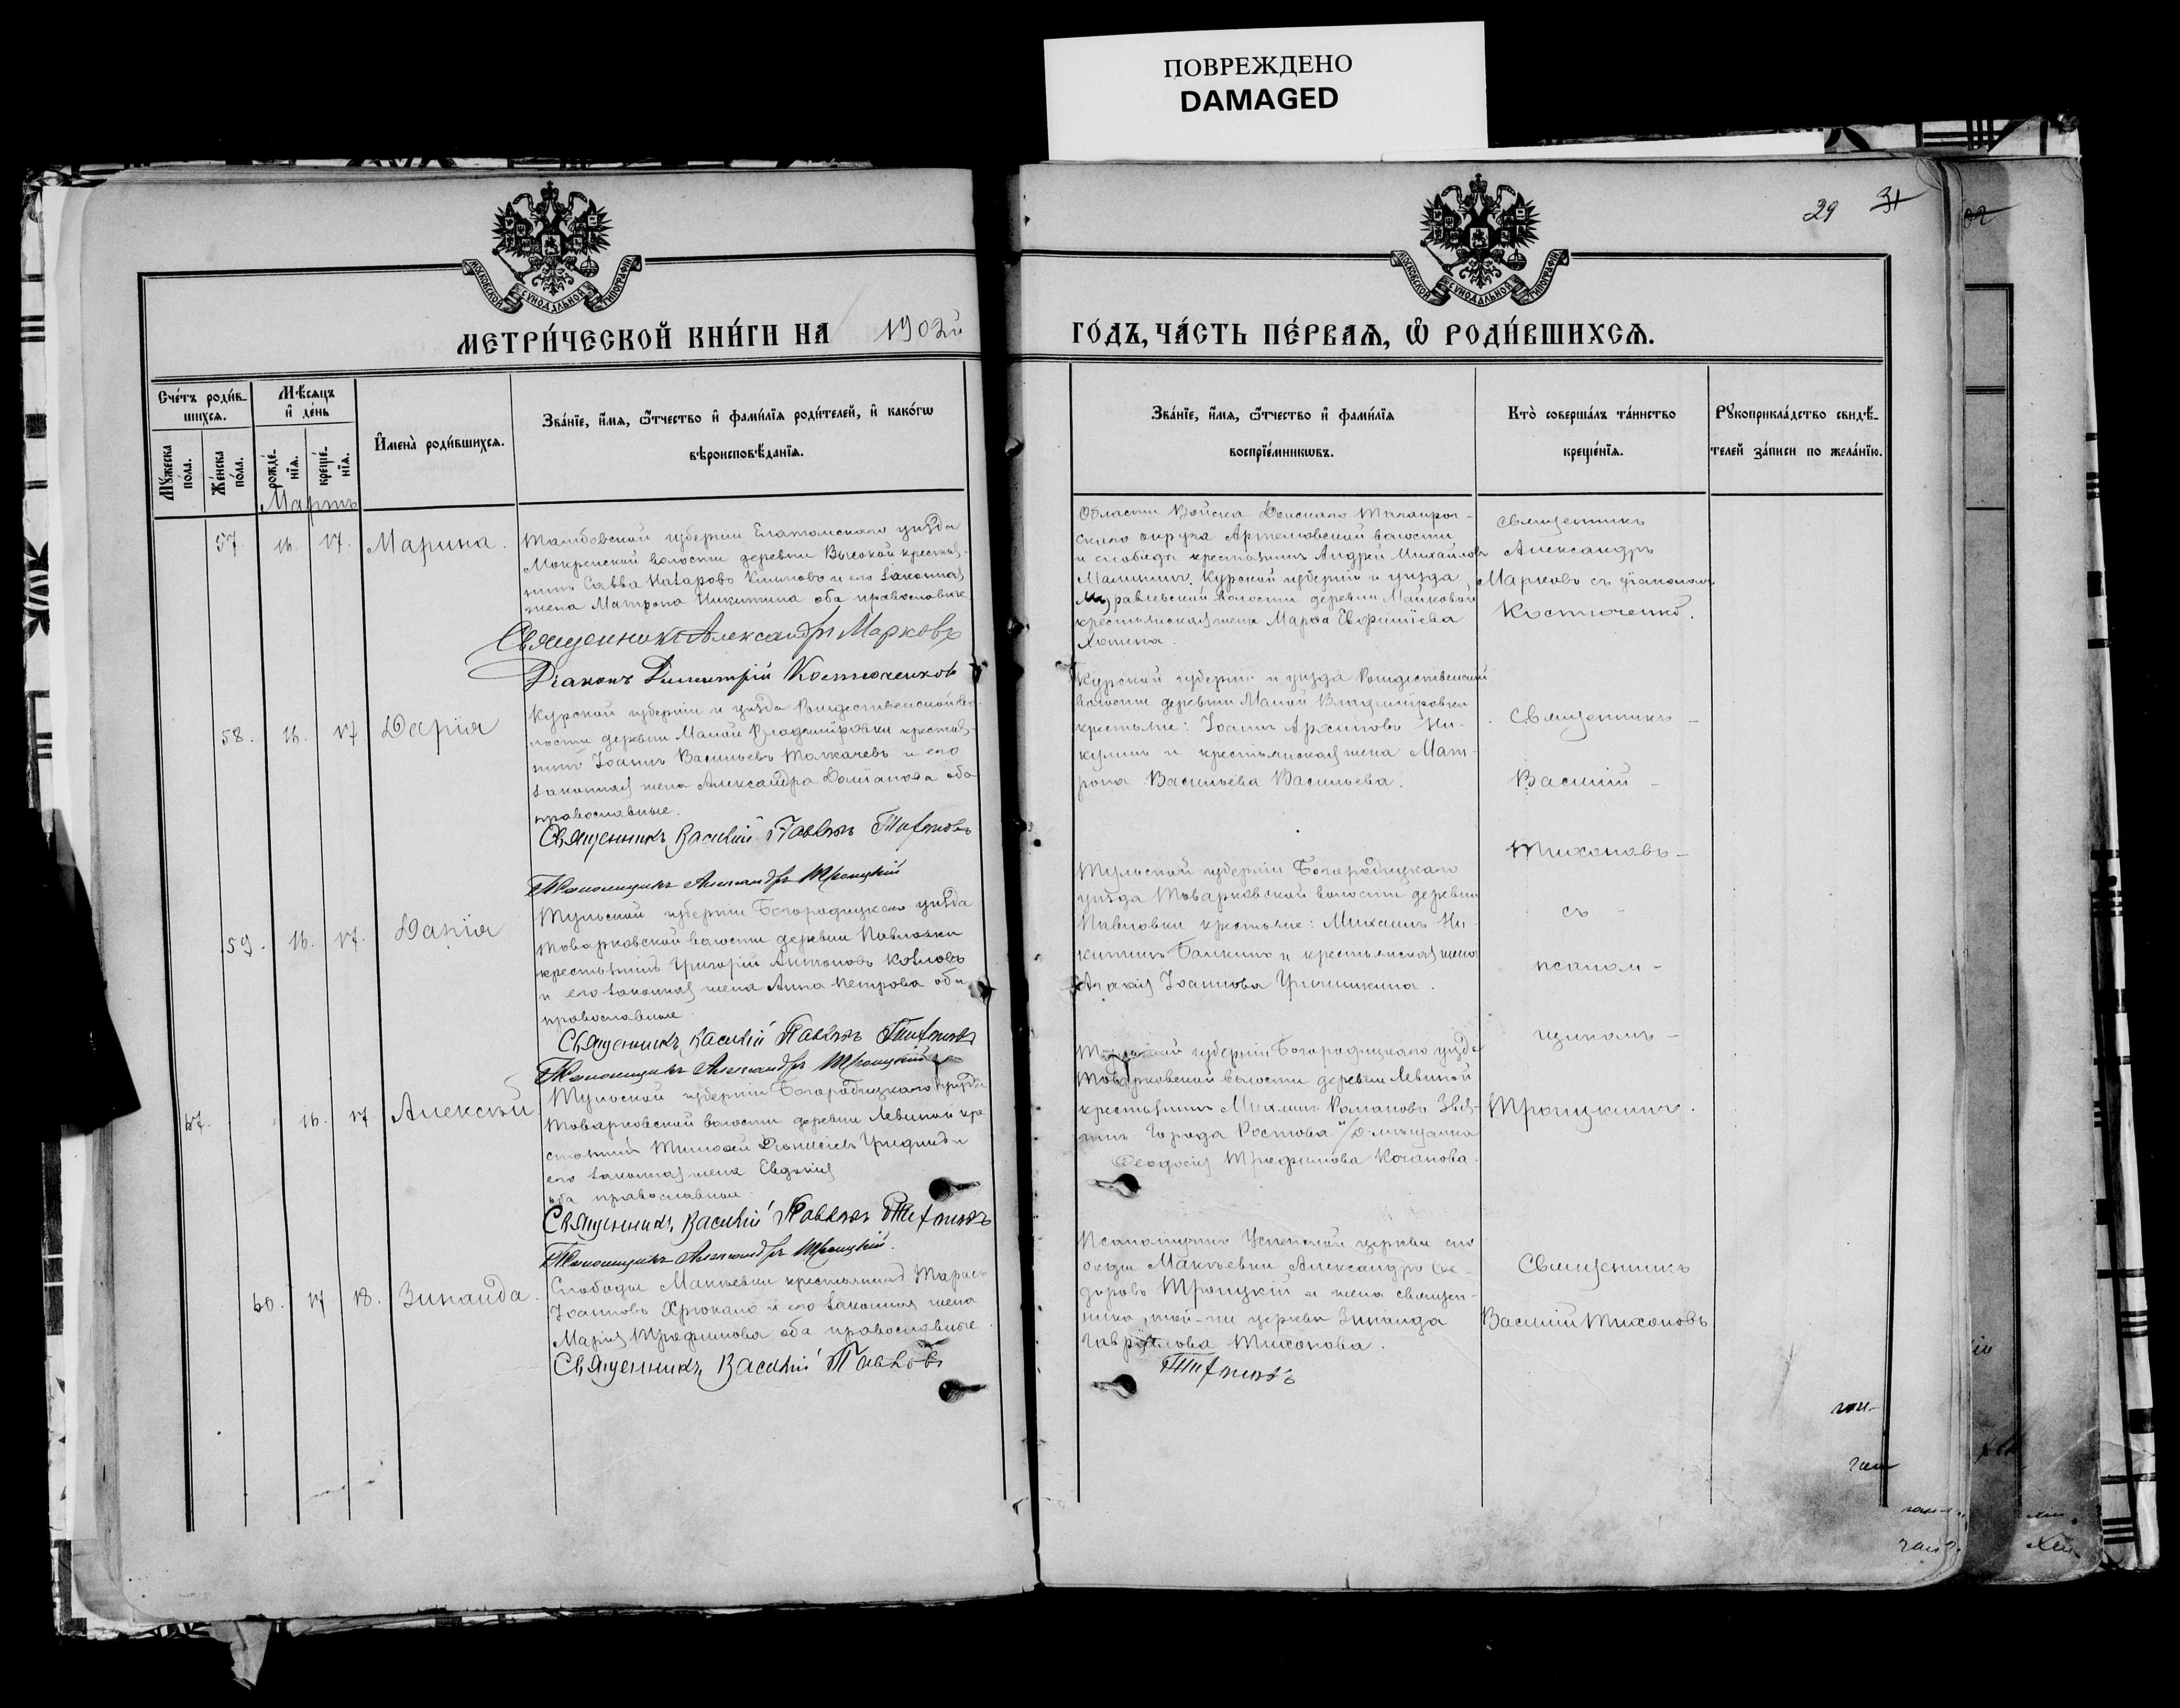 ПОВРЕЖДЕНО
DAMAGED
29 31
МОСКОВСКОЙ СѴНОДАЛЬНОЙ ТИПОГРАФІИ
МОСКОВСКОЙ СѴНОДАЛЬНОЙ ТИПОГРАФІИ
МЕТРИ́ЧЕСКОЙ КНИ́ГИ НА 1903й
ГО́ДЪ, ЧА́СТЬ ПЕ́РВАѦ, Ѡ҆ РОДИ́ВШИХСѦ.
Сче́тъ роди́в-
шихсѧ.
Мꙋ́жеска по́ла.
Же́нска по́ла.
Мѣ́сѧцъ
и҆ де́нь
рожде́-нїѧ.
креще́-нїѧ.
И҆мена̀ роди́вшихсѧ.
Зва́нїе, и҆́мѧ, ѻ҆́тчество и҆ фами́лїѧ роди́телей, и҆ како́гѡ
вѣроисповѣ́данїѧ.
Зва́нїе, и҆́мѧ, ѻ҆́тчество и҆ фами́лїѧ
воспрїе́мникѡвъ.
Кто̀ соверша́лъ та́инство
креще́нїѧ.
Рꙋкоприкла́дство свидѣ́-
телей за́писи по жела́нїю.
Мартъ
57. 16. 17. Марина.
Тамбовской губерніи Елатомскаго уѣзда
Мокренской волости деревни Высокой крестья-
нинъ Савва Назаровъ Климовъ и его законная
жена Матрона Никитина оба православные
Священникъ Александръ Марковъ
Діаконъ Димитрій Костюченковъ
Области Войска Донскаго Таганрог-
скаго округа Артемовской волости
и слободы крестьянинъ Андрей Михайловъ
Малининъ. Курской губерніи и уѣзда
Муравлевской волости деревни Майковой
крестьянская жена Марѳа Евфиміева
священникъ
Александръ
Марковъ съ діакономъ
Костюченко.
58. 16. 17. Дарія
Курской губерніи и уѣзда Рождественской во-
лости деревни Малой Владиміровки крестья-
нинъ Іоаннъ Васильевъ Толкачевъ и его
законная жена Александра Даміанова оба
православные.
Священникъ Василій Павловъ Тихоновъ
Псаломщикъ Александръ Троицкій
Курской губерніи и уѣзда Рождественской
волости деревни Малой Владиміровки
крестьяне: Іоаннъ Архиповъ Ни-
кулинъ и крестьянская жена Мат-
рона Васильева Васильева.
Священникъ
Василій
Тихоновъ
съ
псалом-
щикомъ
Троицкимъ.
59. 16. 17. Дарія
Тульской губерніи Богородицкаго уѣзда
Товарковской волости деревни Павловки
крестьянинъ Григорій Антоновъ Козловъ
и его законная жена Анна Петрова оба
православные
Священникъ Василій Павловъ Тихоновъ
Псаломщикъ Александръ Троицкій
Тульской губерніи Богородицкаго
уѣзда Товарковской волости деревни
Павловки крестьяне: Михаилъ Ни-
китинъ Балкинъ и крестьянская жена
Агаѳія Іоаннова Гришина.
67. 16. 17. Алексѣй
Тульской губерніи Богородицкаго уѣзда
Товарковской волости деревни Левиной кре-
стьянинъ Тимоѳей Діонисіевъ и
его законная жена Евдокія
оба православные
Священникъ Василій Павловъ Тихоновъ
Псаломщикъ Александръ Троицкій.
Тульской губерніи Богородицкаго уѣзда
Товарковской волости деревни Левиной
крестьянинъ Михаилъ Романовъ Звя-
гинъ. Города Ростова н/Д мѣщанка
Ѳеодосія Трофимова Качанова.
60. 17. 18. Зинаида.
Слободы Макѣевки крестьянинъ Тарасъ
Іоанновъ Хрюкало и его законная жена
Марія Трофимова оба православные
Священникъ Василій Павловъ
Псаломщикъ Успенской церкви сло-
боды Макѣевки Александръ Ѳео-
доровъ Троицкій и жена священ-
ника той-же церкви Зинаида
Гавріилова Тихонова.
Тихоновъ
Священникъ
Василій Тихоновъ